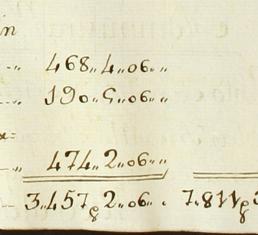 in
-„ 468„4„06„„
-„ 190„5„06„„
x=
-„ 474„2„06„„
3„457ꝑ2„06„ „ 7„811ꝑ3